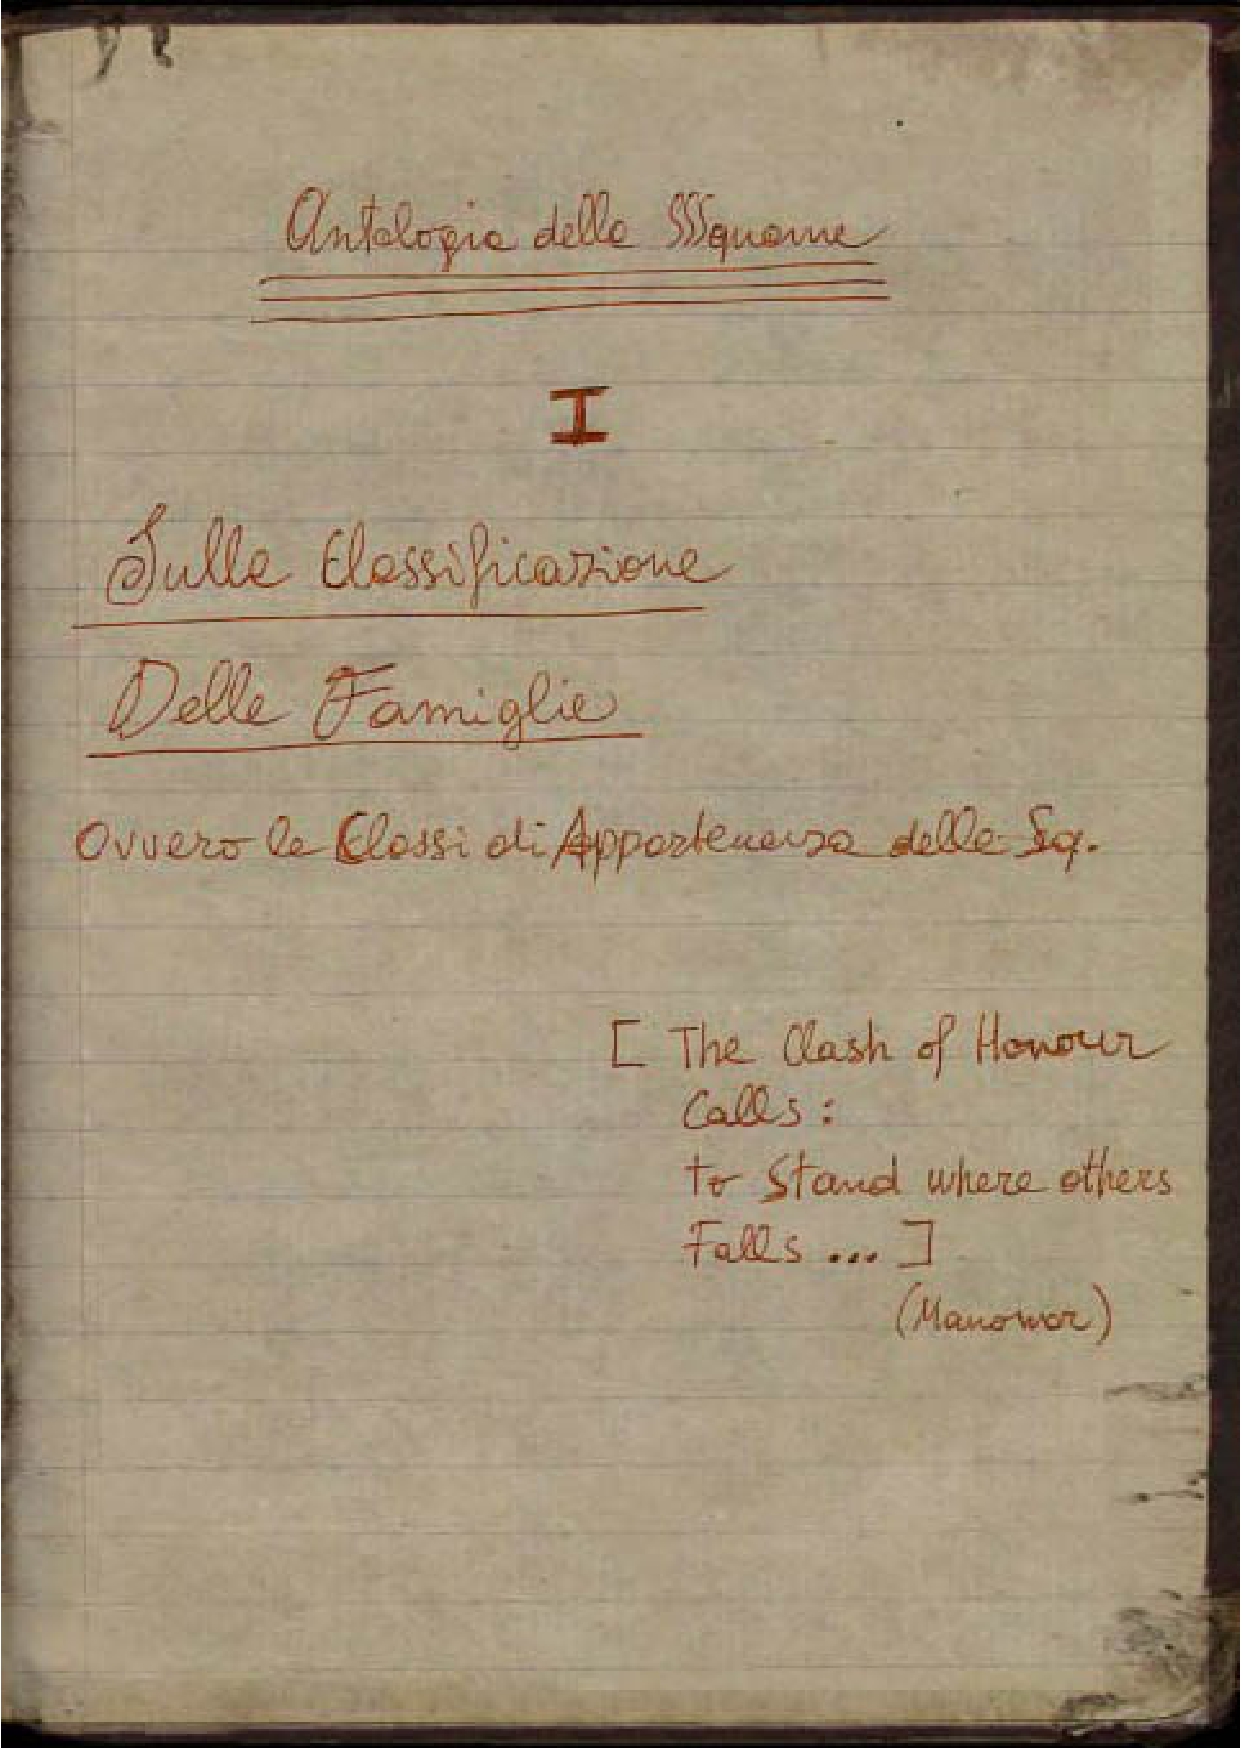 Antologia delle SSSquame
I
Sulla Classificazione
Delle Famiglie
Ovvero le Classi di Appartenenza delle Sq.
[ The Clash of Honour
Calls :
to Stand where others
Falls ... ]
(Manowar)